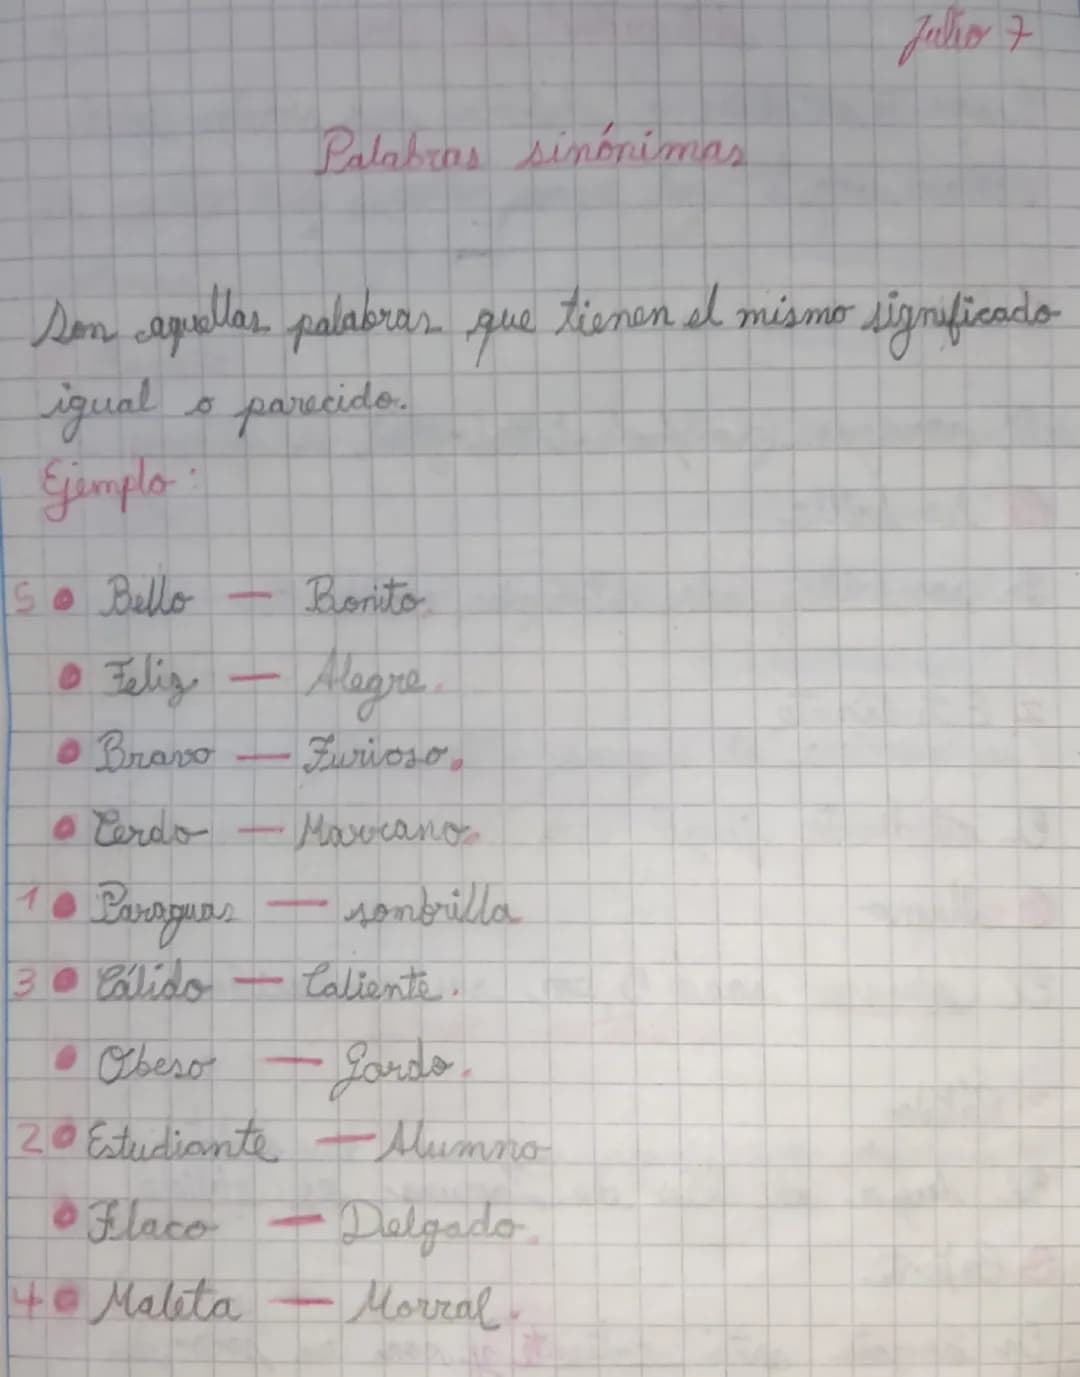 Julio 7
Palabras sinónimas
Son aquellas palabras que tienen el mismo significado
igual o parecido.
Ejemplo:
5 • Bello — Bonito.
• Feliz — Alegre.
• Bravo — Furioso.
• Cerdo — Marrano.
1 • Paraguas — sombrilla
3 • Cálido — Caliente.
• Obeso — Gordo.
2 • Estudiante — Alumno
• Flaco — Delgado.
4 • Maleta — Morral.